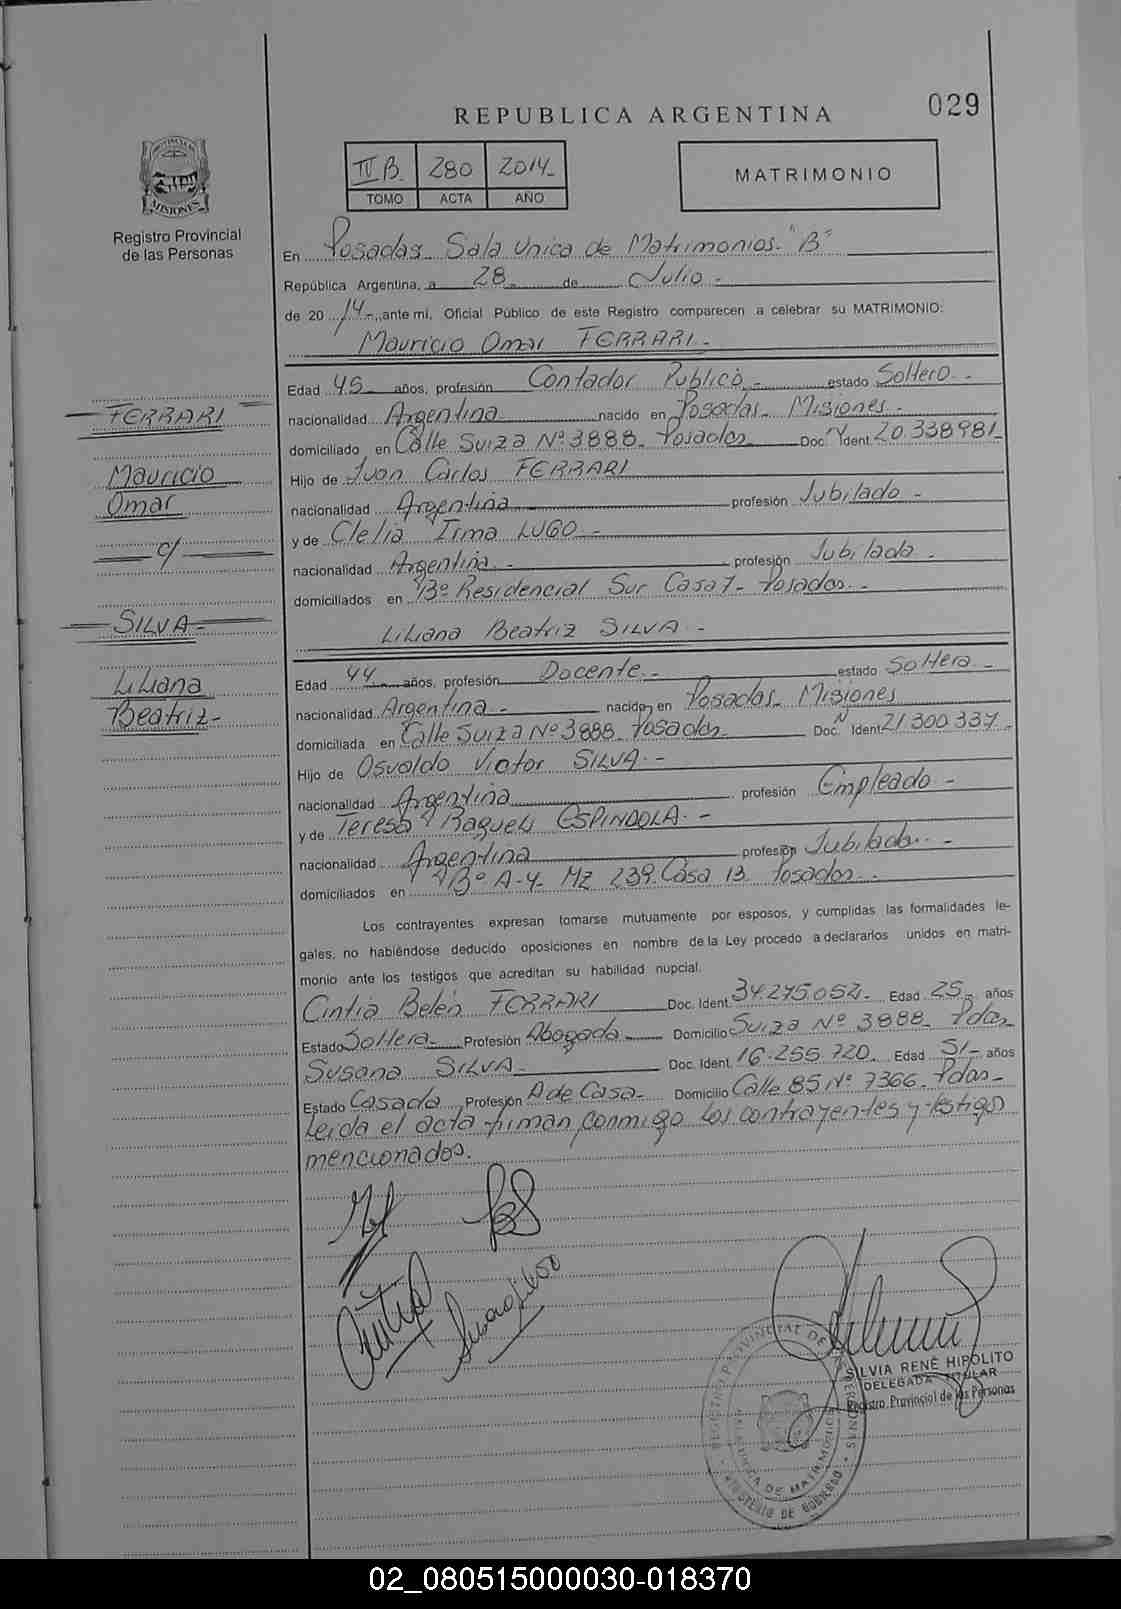 029
REPUBLICA ARGENTINA
IV B. 280 2014-
TOMO ACTA AÑO
MATRIMONIO
PROVINCIA
MISIONES
Registro Provincial
de las Personas
En Posadas Sala Unica de Matrimonios "B"
República Argentina, a 28 de Julio -
de 20 14-, ante mí, Oficial Público de este Registro comparecen a celebrar su MATRIMONIO:
Mauricio Omar FERRARI -
Edad 45 años, profesión Contador Publico - estado Soltero -
nacionalidad Argentina nacido en Posadas Misiones -
domiciliado en Calle Suiza Nº 3888 Posadas Doc. Ident. 20.338981
Hijo de Juan Carlos FERRARI
nacionalidad Argentina profesión Jubilado -
y de Clelia Irma LUGO -
nacionalidad Argentina - profesión Jubilada -
domiciliados en Bº Residencial Sur Casa 7- Posadas -
Liliana Beatriz SILVA -
Edad 44 años, profesión Docente - estado Soltera -
nacionalidad Argentina - nacido en Posadas Misiones
domiciliada en Calle Suiza Nº 3888 Posadas Doc. Ident. 21.300.337
Hijo de Osvaldo Victor SILVA -
nacionalidad Argentina profesión Empleado -
y de Teresa Raquel ESPINDOLA -
nacionalidad Argentina profesión Jubilada -
domiciliados en Bº A-4- Mz 239 Casa 13 Posadas -
Los contrayentes expresan tomarse mutuamente por esposos, y cumplidas las formalidades le-
gales, no habiéndose deducido oposiciones en nombre de la Ley procedo a declararlos unidos en matri-
monio ante los testigos que acreditan su habilidad nupcial.
Cintia Belén FERRARI Doc. Ident. 34.275.052 - Edad 25 - años
Estado Soltera Profesión Abogada Domicilio Suiza Nº 3888 Pdas
Susana SILVA Doc. Ident. 16.255.720 Edad 51- años
Estado Casada Profesión A de Casa Domicilio Calle 85 Nº 7366 - Pdas -
Leida el acta firman conmigo los contrayentes y testigos
mencionados.
FERRARI
Mauricio
Omar
c/
SILVA
Liliana
Beatriz-
Cintia
SILVIA RENÉ HIPÓLITO
DELEGADA TITULAR
Registro Provincial de las Personas
REGISTRO PROVINCIAL DE LAS PERSONAS
MINISTERIO DE GOBIERNO
DE MATRIMONIOS
02_080515000030-018370